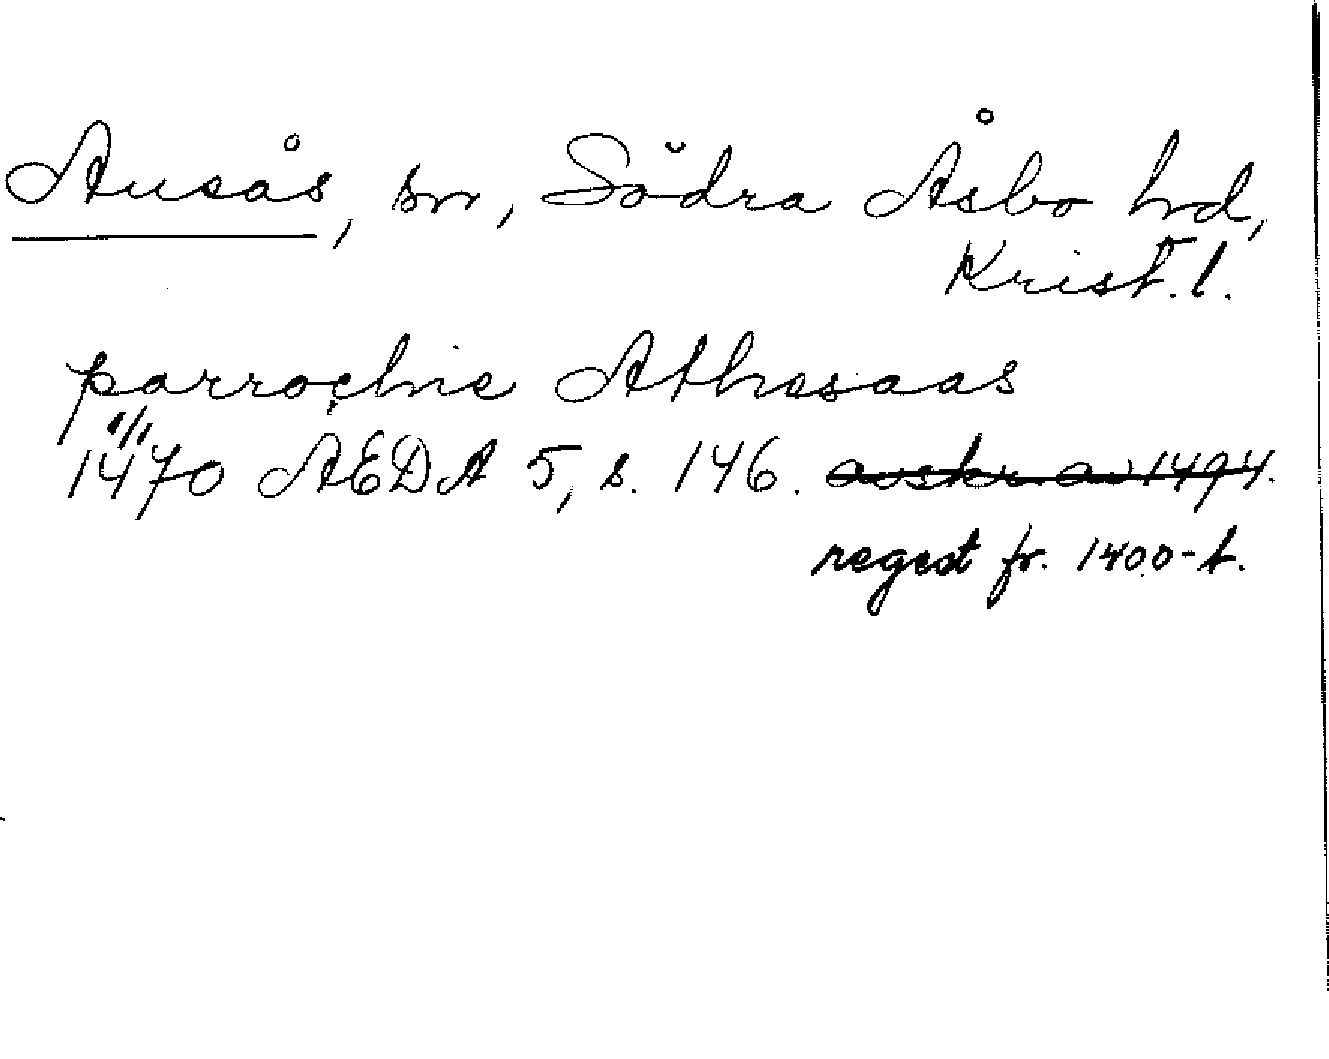 Ausås, sn, Södra Åsbo hd,
Krist. l.
parrochie Athesaas
1470 AEDA 5, s. 146. avskr av 1494.
regest fr. 1400-t.